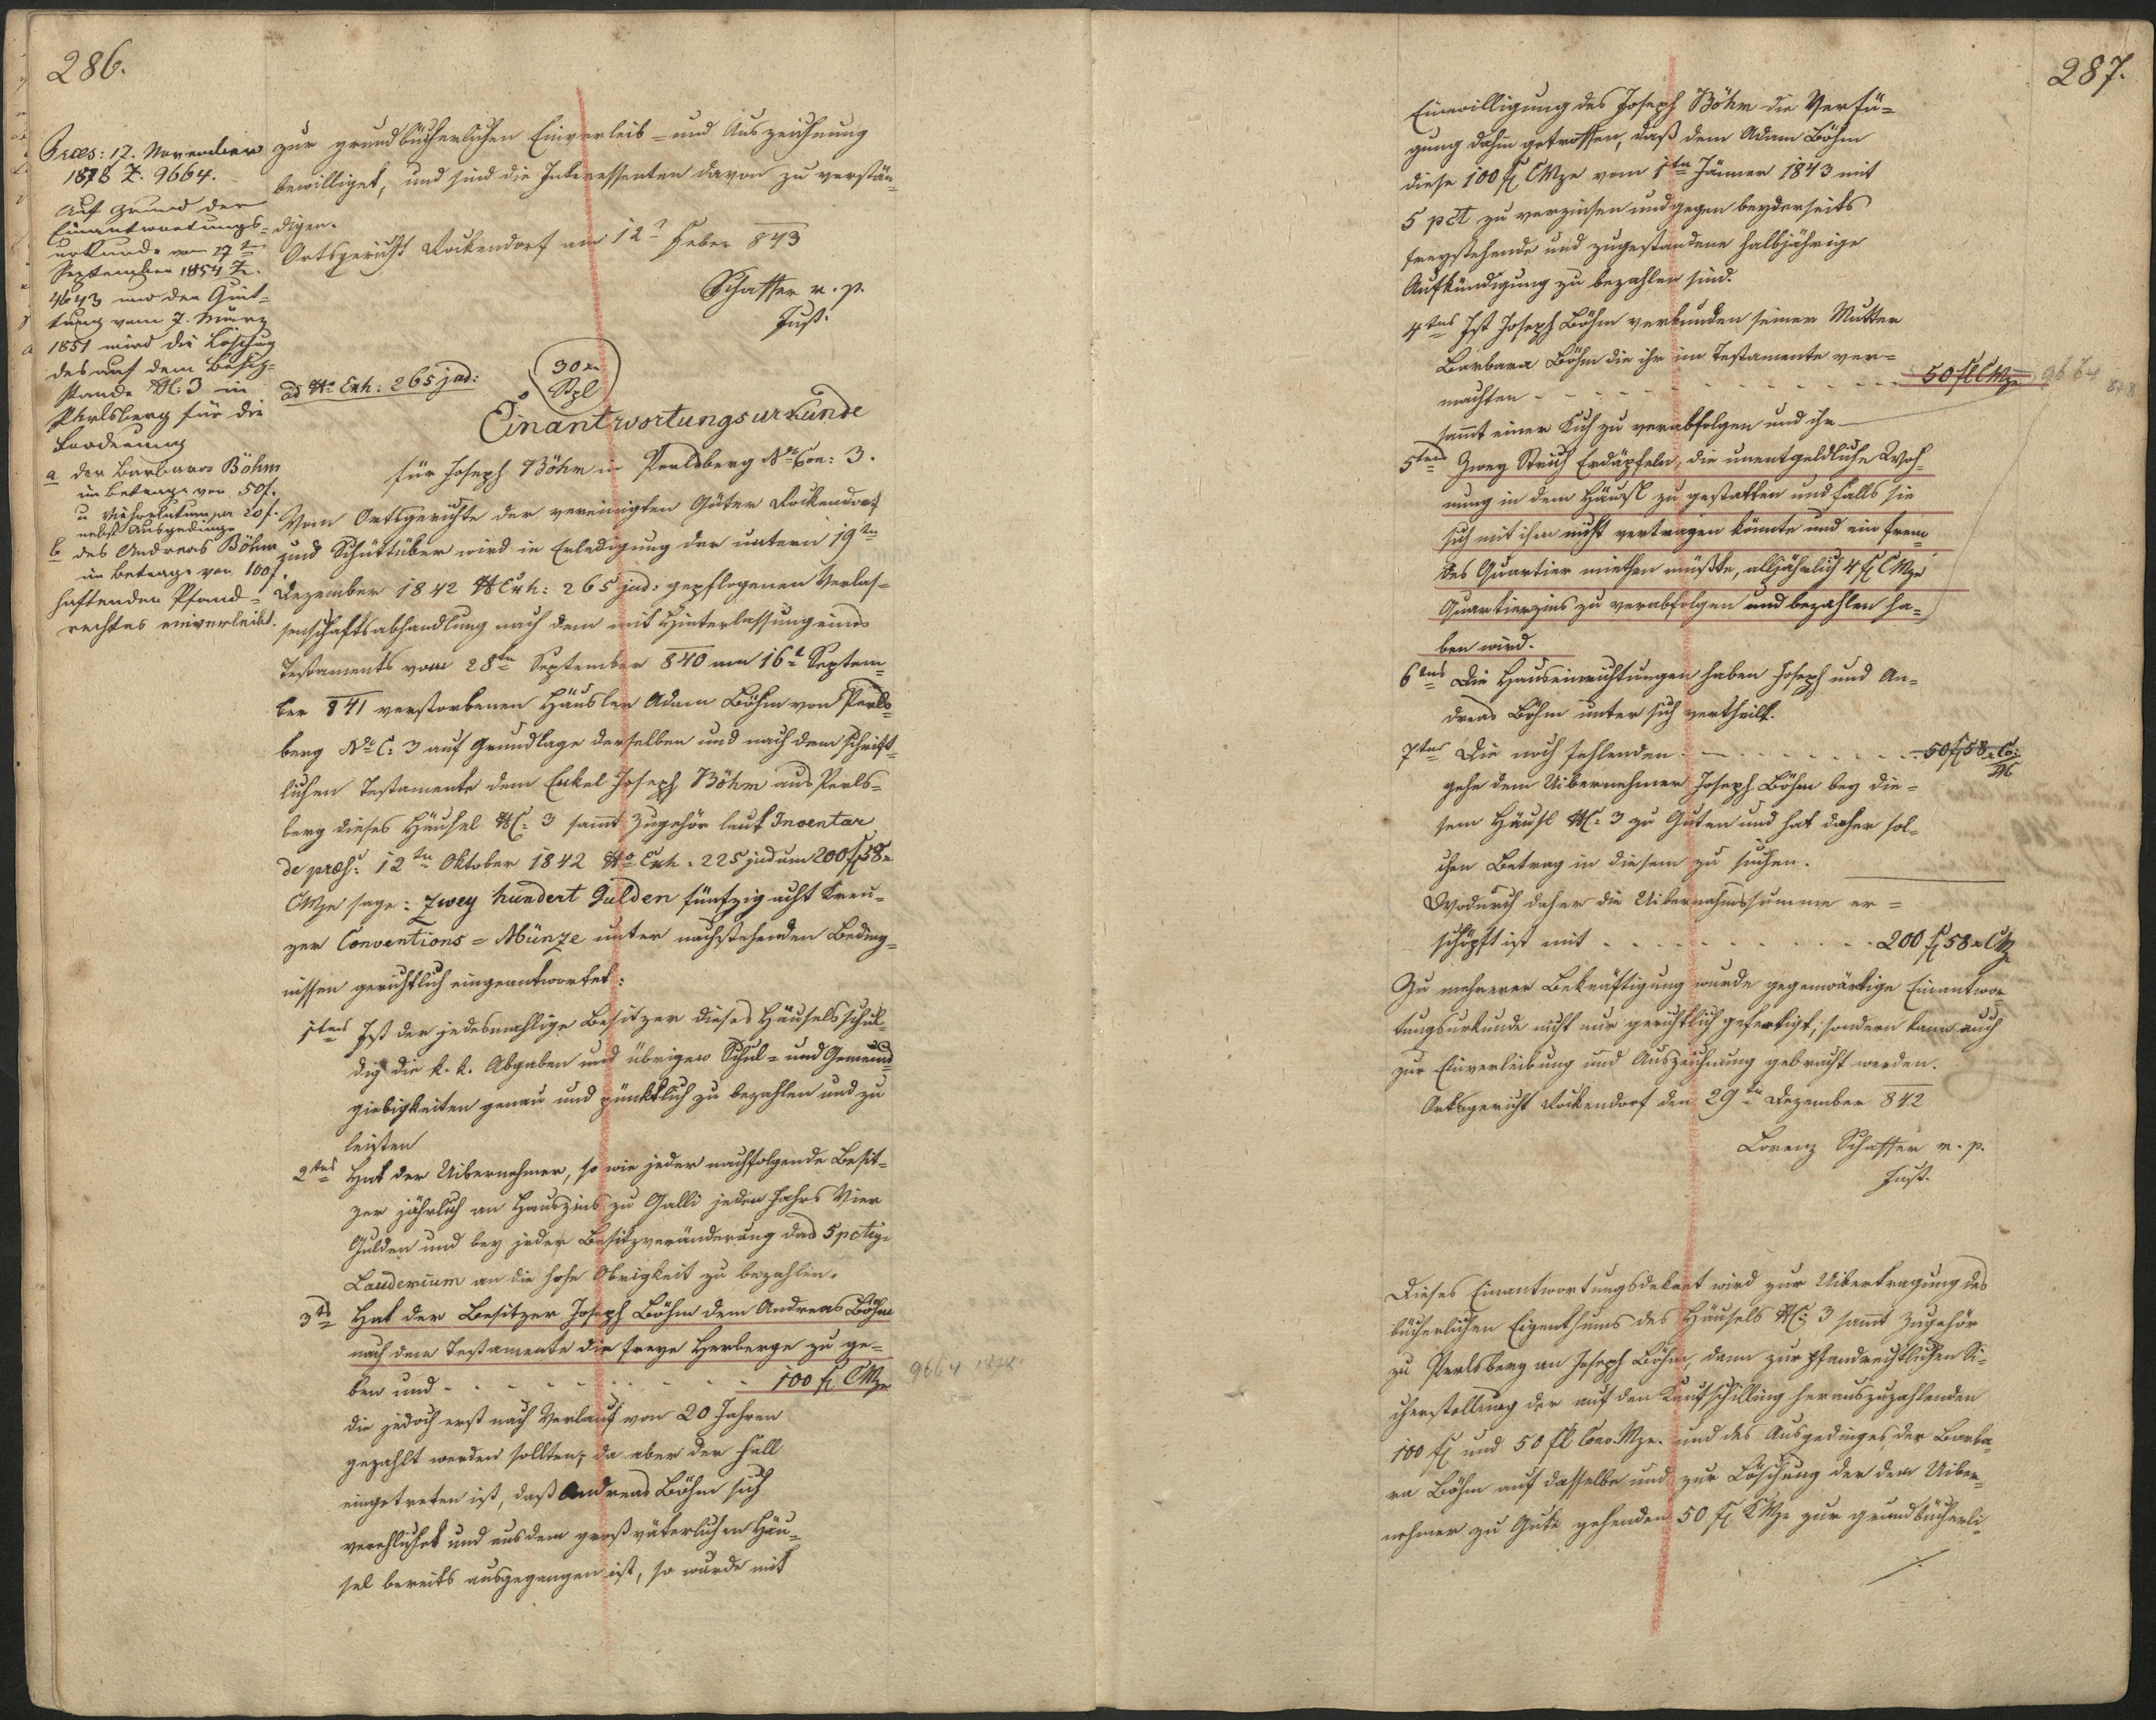 286.
Præs: 17. November
1878 Z. 9664.
Auf Grund der
Einantwortungs-
urkunde vom 27ten
September 1854 Z.
4643 und der Quit-
tung vom 7. März
1851 wird die Löschung
des auf dem Besitz-
stande NC: 3 in
Perlsberg für die
Forderung
a der Barbara Böhm
im Betrage von 50f.
u per 20f.
nebst Ausgedinge
b des Andreas Böhm
im Betrage von 100f.
haftenden Pfand-
rechtes einverleibt.
zur grundbücherlichen Einverleib- und Auszeichnung
bewilliget, und sind die Interessenten davon zu verstän-
digen.
Ortsgericht Rockendorf am 12t Feber 843
Schaffer m. p.
Just.
ad No Exh: 265 jud:
30 xr
Stpl
Einantwortungsurkunde
für Joseph Böhm in Perlsberg No Con: 3.
Vom Ortsgerichte der vereinigten Güter Rockendorf
und Schüttüber wird in Erledigung der unterm 19ten
Dezember 1842 NExh: 265 jud: gepflogenen Verlas-
senschaftsabhandlung nach dem mit Hinterlassung eines
Testaments vom 28ten September 840 am 16t Septem-
ber 841 verstorbenen Häusler Adam Böhm von Perls-
berg No C: 3 auf Grundlage derselben und nach dem schrift-
lichen Testamente dem Enkel Joseph Böhm aus Perls-
berg dieses Häusel NC: 3 sammt Zugehör laut Inventar
de præs: 12ten Oktober 1842 No Exh. 225 jud um 200 f 58 x
CMze sage: Zwey hundert Gulden fünfzig acht Kreu-
zer Conventions-Münze unter nachstehenden Beding-
nissen gerichtlich eingeantwortet:
1tens Ist der jedesmahlige Besitzer dieses Häusels schul-
dig die k. k. Abgaben und übrigen Schul- und Gemeind-
giebigkeiten genau und pünktlich zu bezahlen und zu
leisten
2tens Hat der Uibernehmer, so wie jeder nachfolgende Besit-
zer jährlich an Hauszins zu Galli jeden Jahrs Vier
Gulden und bey jeder Besitzveränderung das 5 pctige
Laudemium an die hohe Obrigkeit zu bezahlen.
3ts Hat der Besitzer Joseph Böhm dem Andreas Böhm
nach dem Testamente die freye Herberge zu ge-
ben und - - - - - - - - 100 f CMze
9664 1878
die jedoch erst nach Verlauf von 20 Jahren
gezahlt werden sollten; da aber der Fall
eingetreten ist, daß Andreas Böhm sich
verehlichet und aus dem großväterlichen Häu-
sel bereits ausgegangen ist, so wurde mit
287.
Einwilligung des Joseph Böhm die Verfü-
gung dahin getroffen, daß dem Adam Böhm
diese 100 f CMze vom 1ten Jänner 1843 mit
5 pct zu verzinsen und gegen beyderseits
freystehende und zugestandene halbjährige
Aufkündigung zu bezahlen sind.
4tens Ist Joseph Böhm verbunden seiner Mutter
Barbara Böhm die ihr im Testamente ver-
machten - - - - - - - - 50 fl CMze
9664 878
sammt einer Kuh zu verabfolgen und ihr
5tens Zwey Strich Erdäpfeln, die unentgeldliche Woh-
nung in dem Häusl zu gestatten und falls sie
sich mit ihm nicht vertragen könnte und ein frem-
des Quartier miethen müßte, alljährlich 4 f CMze
Quartierzins zu verabfolgen und bezahlen ha-
ben wird.
6tens Die Hauseinrichtungen haben Joseph und An-
dreas Böhm unter sich vertheilt.
7tens Die noch fehlenden - - - - - - 50 f 58 x Co:
Mz
gehe dem Uibernehmer Joseph Böhm bey die-
sem Häusl NC: 3 zu Guten und hat daher sol-
chen Betrag in diesem zu suchen.
Wodurch daher die Uibernahmssumme er-
schöpft ist mit - - - - - - - 200 f 58 x CMz
Zu mehrerer Bekräftigung wurde gegenwärtige Einantwor-
tungsurkunde nicht nur gerichtlich gefertigt, sondern kann auch
zur Einverleibung und Auszeichnung gebracht werden.
Ortsgericht Rockendorf den 29ten Dezember 842
Lorenz Schaffer m. p.
Just.
Dieses Einantwortungsdekret wird zur Uibertragung des
bücherlichen Eigenthums des Häusels NC: 3 sammt Zugehör
zu Perlsberg an Joseph Böhm, dann zur pfandrechtlichen Si-
cherstellung der auf den Kaufschilling herauszuzahlenden
100 f und 50 fl Conv.Mze. und des Ausgedinges der Barba-
ra Böhm auf dasselbe und zur Löschung der dem Uiber-
nehmer zu Gute gehenden 50 f CMze zur grundbücherli-